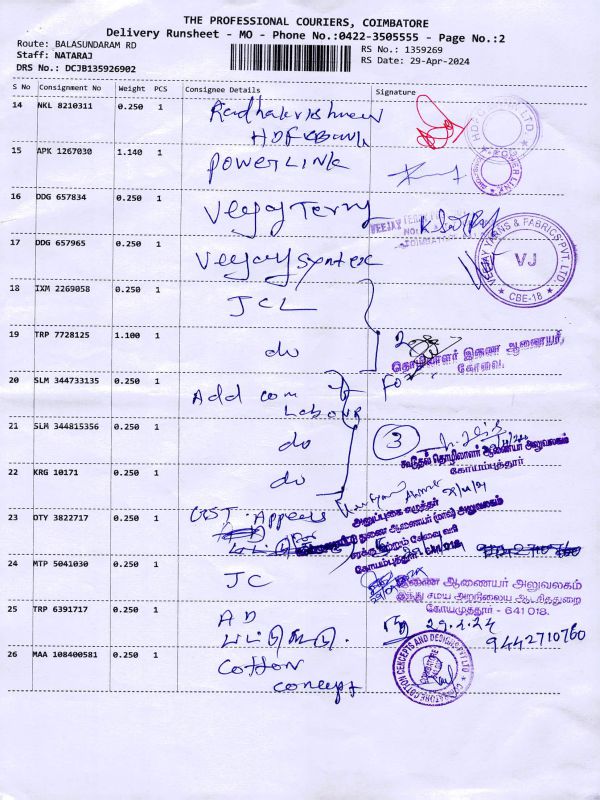 THE PROFESSIONAL COURIERS, COIMBATORE
Delivery Runsheet - MO - Phone No.:0422-3505555 - Page No.:2
Route: BALASUNDARAM RD
RS No.: 1359269
Staff: NATARAJ
RS Date: 29-Apr-2024
DRS No.: DCJB135926902
S No Consignment No Weight PCS Consignee Details Signature
14 NKL 8210311 0.250 1 Radhakrishnan
HDFC Bank
15 APK 1267030 1.140 1 POWERLINK
16 DDG 657834 0.250 1 Veejay Terry
17 DDG 657965 0.250 1 Veejay Syntex
VEEJAY YARNS & FABRICS PVT. LTD
VJ
CBE-18
18 IXM 2269058 0.250 1 JCL
19 TRP 7728125 1.100 1 do
2
தொழிலாளர் இணை ஆணையர்,
கோவை.
20 SLM 344733135 0.250 1 Add com
Labour
For
21 SLM 344815356 0.250 1 do
3
கூடுதல் தொழிலாளர் ஆணையர் அலுவலகம்
கோயம்புத்தூர்
22 KRG 10171 0.250 1 do
23 DTY 3822717 0.250 1 GST. Appeals
24 MTP 5041030 0.250 1 JC
இணை ஆணையர் அலுவலகம்
இந்து சமய அறநிலைய ஆட்சித்துறை
கோயமுத்தூர் - 641 018.
25 TRP 6391717 0.250 1 AD
29.4.24
9442710760
26 MAA 108400581 0.250 1 Cotton
concept